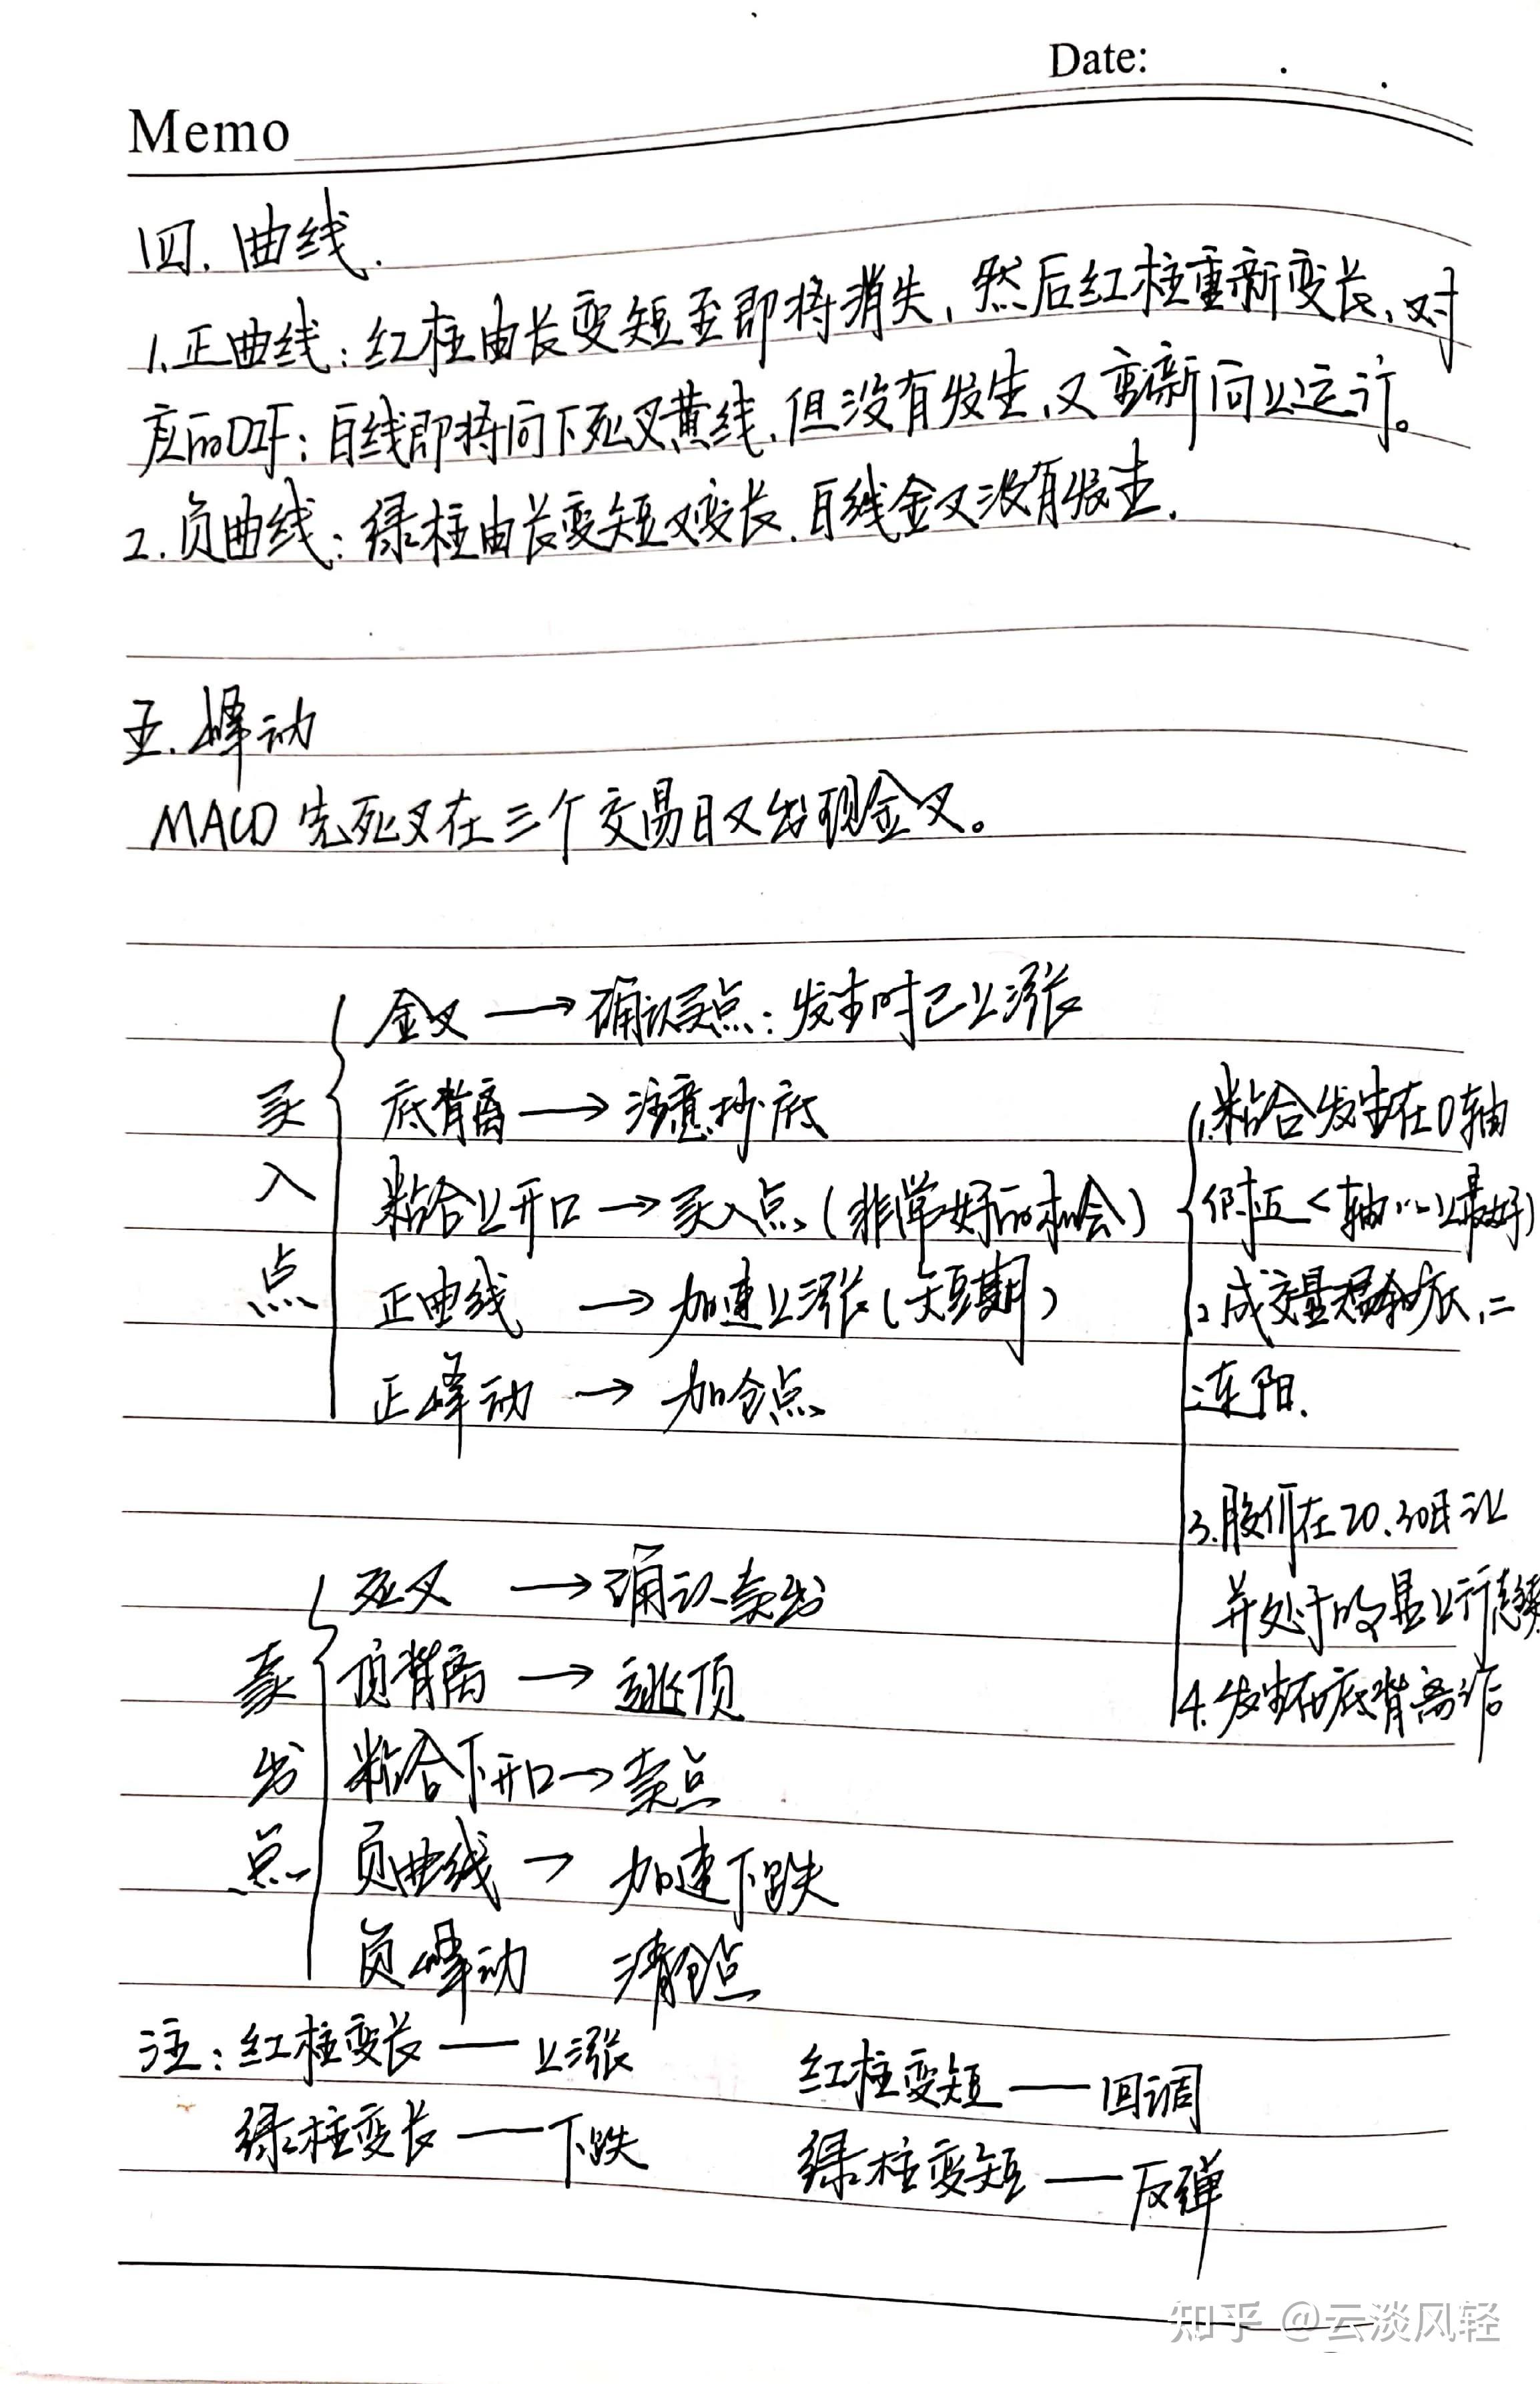 Date:
Memo
四.曲线.
1.正曲线:红柱由长变短至即将消失,然后红柱重新变长,对
应的DIF:白线即将向下死叉黄线,但没有发生,又重新向上运行。
2.负曲线:绿柱由长变短又变长.白线金叉没有发生.
五.峰动
MACD先死叉在三个交易日又出现金叉。
买入点
金叉→确认买点:发生时已上涨
底背离→注意抄底
粘合上开口→买入点(非常好的机会)
正曲线→加速上涨(短期)
正峰动→加仓点
1.粘合发生在0轴
附近<轴以上最好)
2.成交量温和放,二
连阳.
3.股价在20.30日
并处于明显上行趋势
4.发生在底背离后
卖出点
死叉→确认卖出
顶背离→逃顶
粘合下开口→卖点
负曲线→加速下跌
负峰动 清仓点
注:红柱变长——上涨 红柱变短——回调
绿柱变长——下跌 绿柱变短——反弹
知乎 @云淡风轻